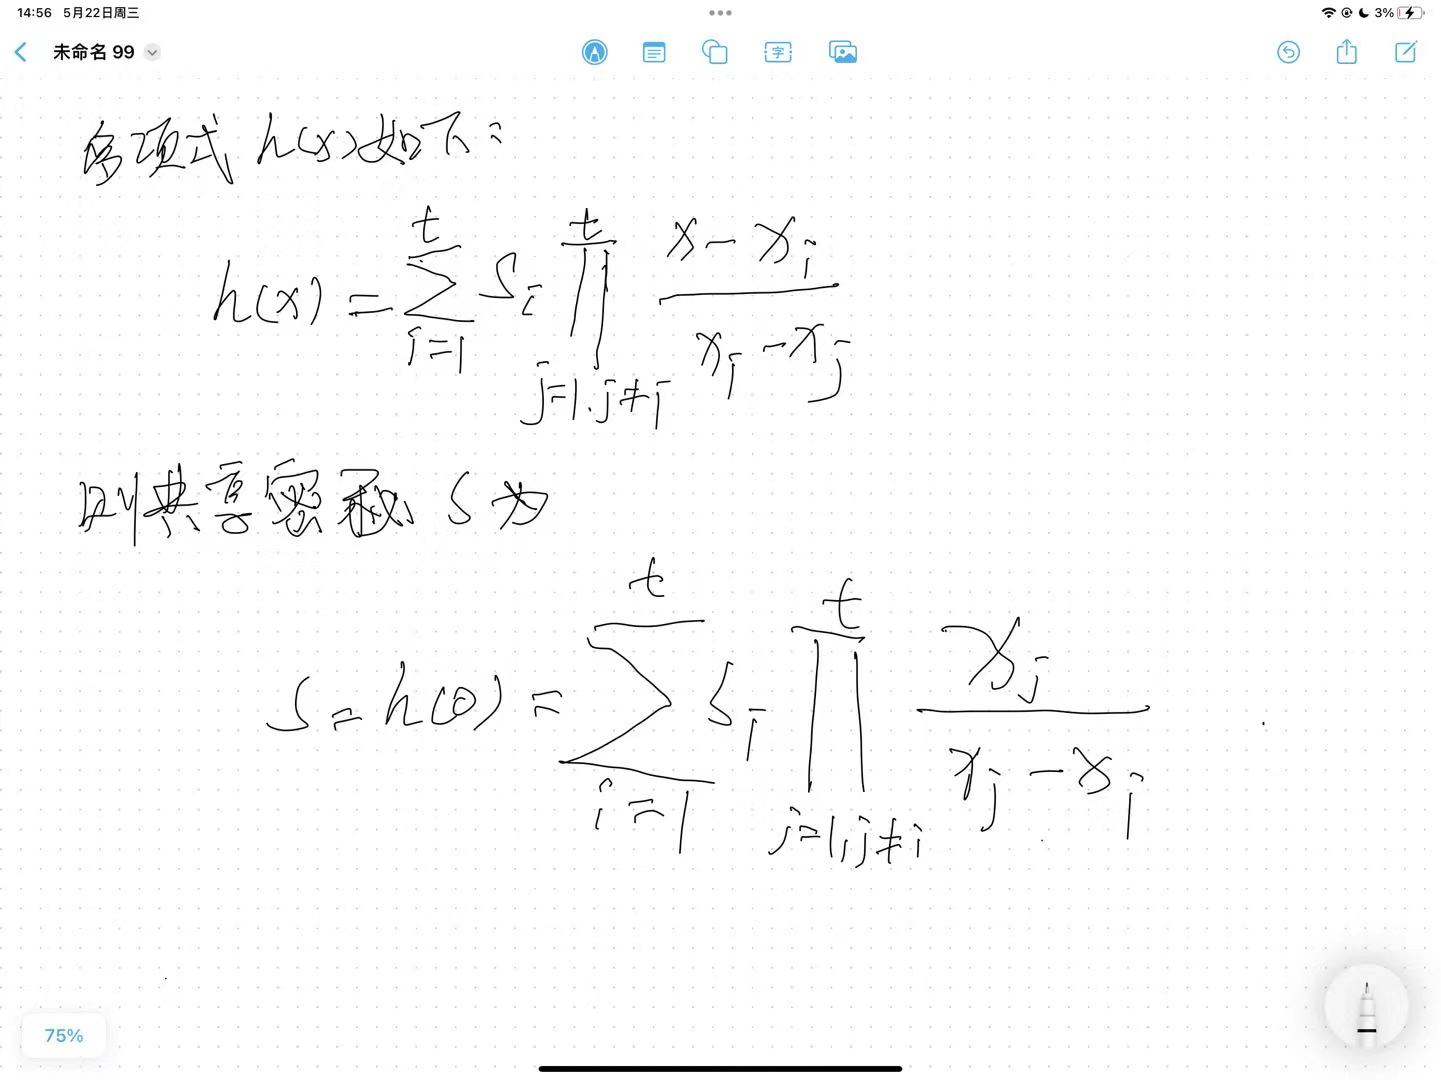 14:56 5月22日周三
3%
未命名 99
字
多项式 h(x) 如下:
h(x) = \sum_{i=1}^{t} s_i \prod_{j=1, j≠i}^{t} \frac{x - x_i}{x_i - x_j}
则共享密秘 S 为
S = h(0) = \sum_{i=1}^{t} s_i \prod_{j=1, j≠i}^{t} \frac{x_j}{x_j - x_i}
75%